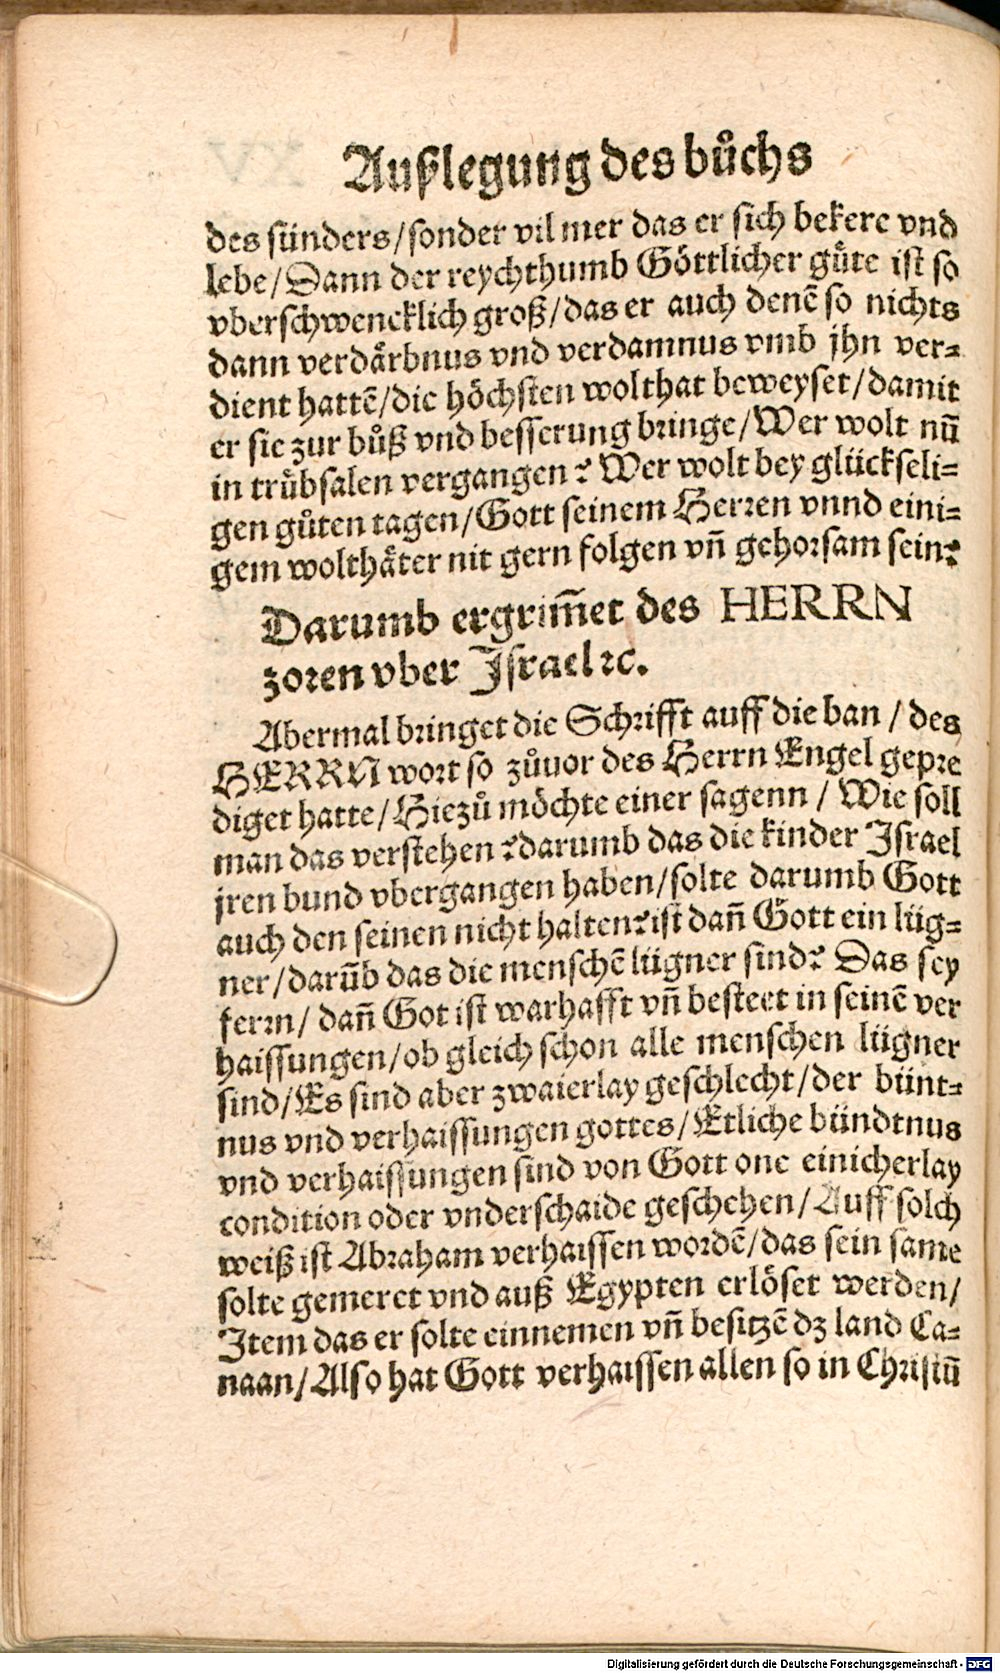 Außlegung des bůchs
des sünders/sonder vil mer das er sich bekere vnd
lebe/Dann der reychthumb Göttlicher gůte ist so
vberschwencklich groß/das er auch denē so nichts
dann verdärbnus vnd verdamnus vmb jhn ver-
dient hattē/die höchsten wolthat beweyset/damit
er sie zur bůß vnd besserung bringe/Wer wolt nū
in trůbsalen vergangen? Wer wolt bey glückseli-
gen gůten tagen/Gott seinem Herren vnnd eini-
gem wolthäter nit gern folgen vñ gehorsam sein?
Darumb ergrim̄et des HERRN
zoren vber Israel ꝛc.
Abermal bringet die Schrifft auff die ban / des
HERRN wort so zůuor des Herrn Engel gepre
diget hatte/Hiezů möchte einer sagenn / Wie soll
man das verstehen ?darumb das die kinder Israel
jren bund vbergangen haben/solte darumb Gott
auch den seinen nicht halten?ist dañ Gott ein lüg-
ner/darūb das die menschē lügner sind? Das sey
ferrn/ dañ Got ist warhafft vñ besteet in seinē ver
haissungen/ob gleich schon alle menschen lügner
sind/Es sind aber zwaierlay geschlecht/der bünt-
nus vnd verhaissungen gottes/Etliche bündtnus
vnd verhaissungen sind von Gott one einicherlay
condition oder vnderschaide geschehen/Auff solch
weiß ist Abraham verhaissen wordē/das sein same
solte gemeret vnd auß Egypten erlöset werden/
Item das er solte einnemen vñ besitzē dz land Ca-
naan/Also hat Gott verhaissen allen so in Christū
Digitalisierung gefördert durch die Deutsche Forschungsgemeinschaft - DFG